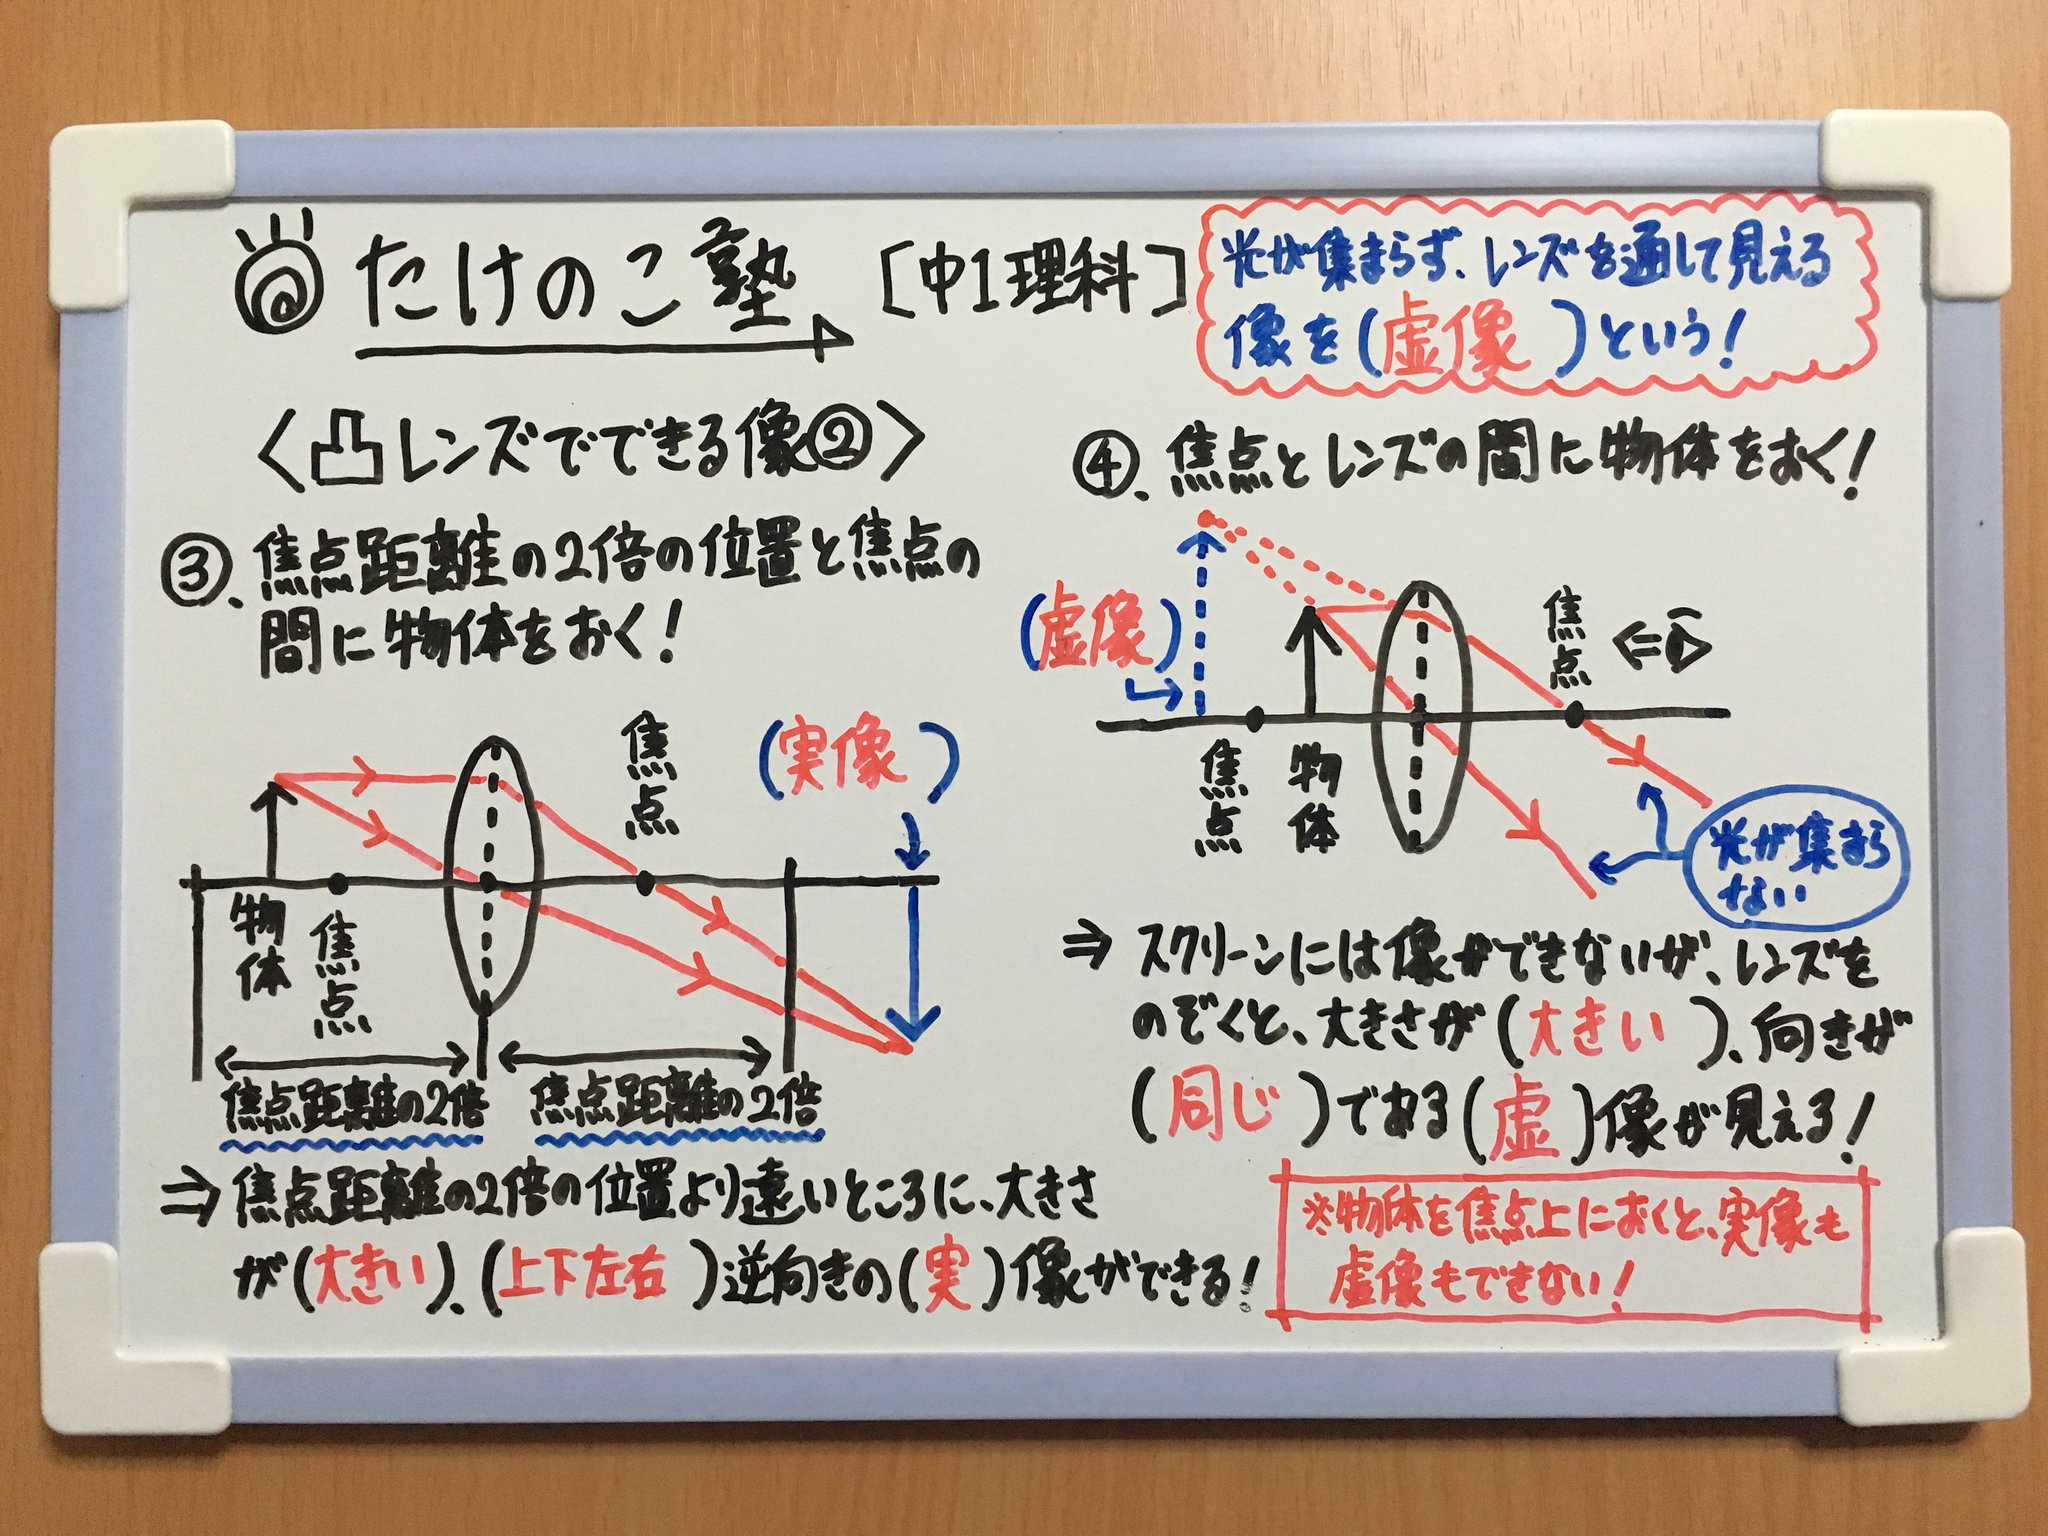 たけのこ塾 [中1理科]
光が集まらず、レンズを通して見える
像を(虚像)という!
〈凸レンズでできる像②〉
③、焦点距離の2倍の位置と焦点の
間に物体をおく!
焦点
(実像)
物体
焦点
焦点距離の2倍
焦点距離の2倍
⇒焦点距離の2倍の位置より遠いところに、大きさ
が(大きい)、(上下左右)逆向きの(実)像ができる!
④、焦点とレンズの間に物体をおく!
(虚像)
焦点
焦点
物体
光が集まら
ない
⇒スクリーンには像ができないが、レンズを
のぞくと、大きさが(大きい)、向きが
(同じ)である(虚)像が見える!
※物体を焦点上におくと、実像も
虚像もできない!